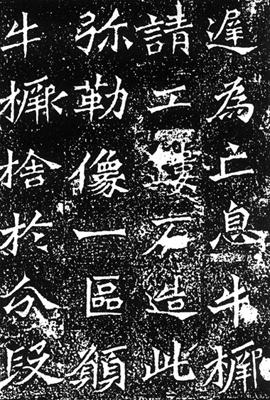 遲為亡息牛橛
請工鏤石造此
弥勒像一區願
牛橛捨於分段